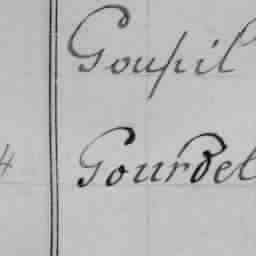 Goupil
4 Gourdel